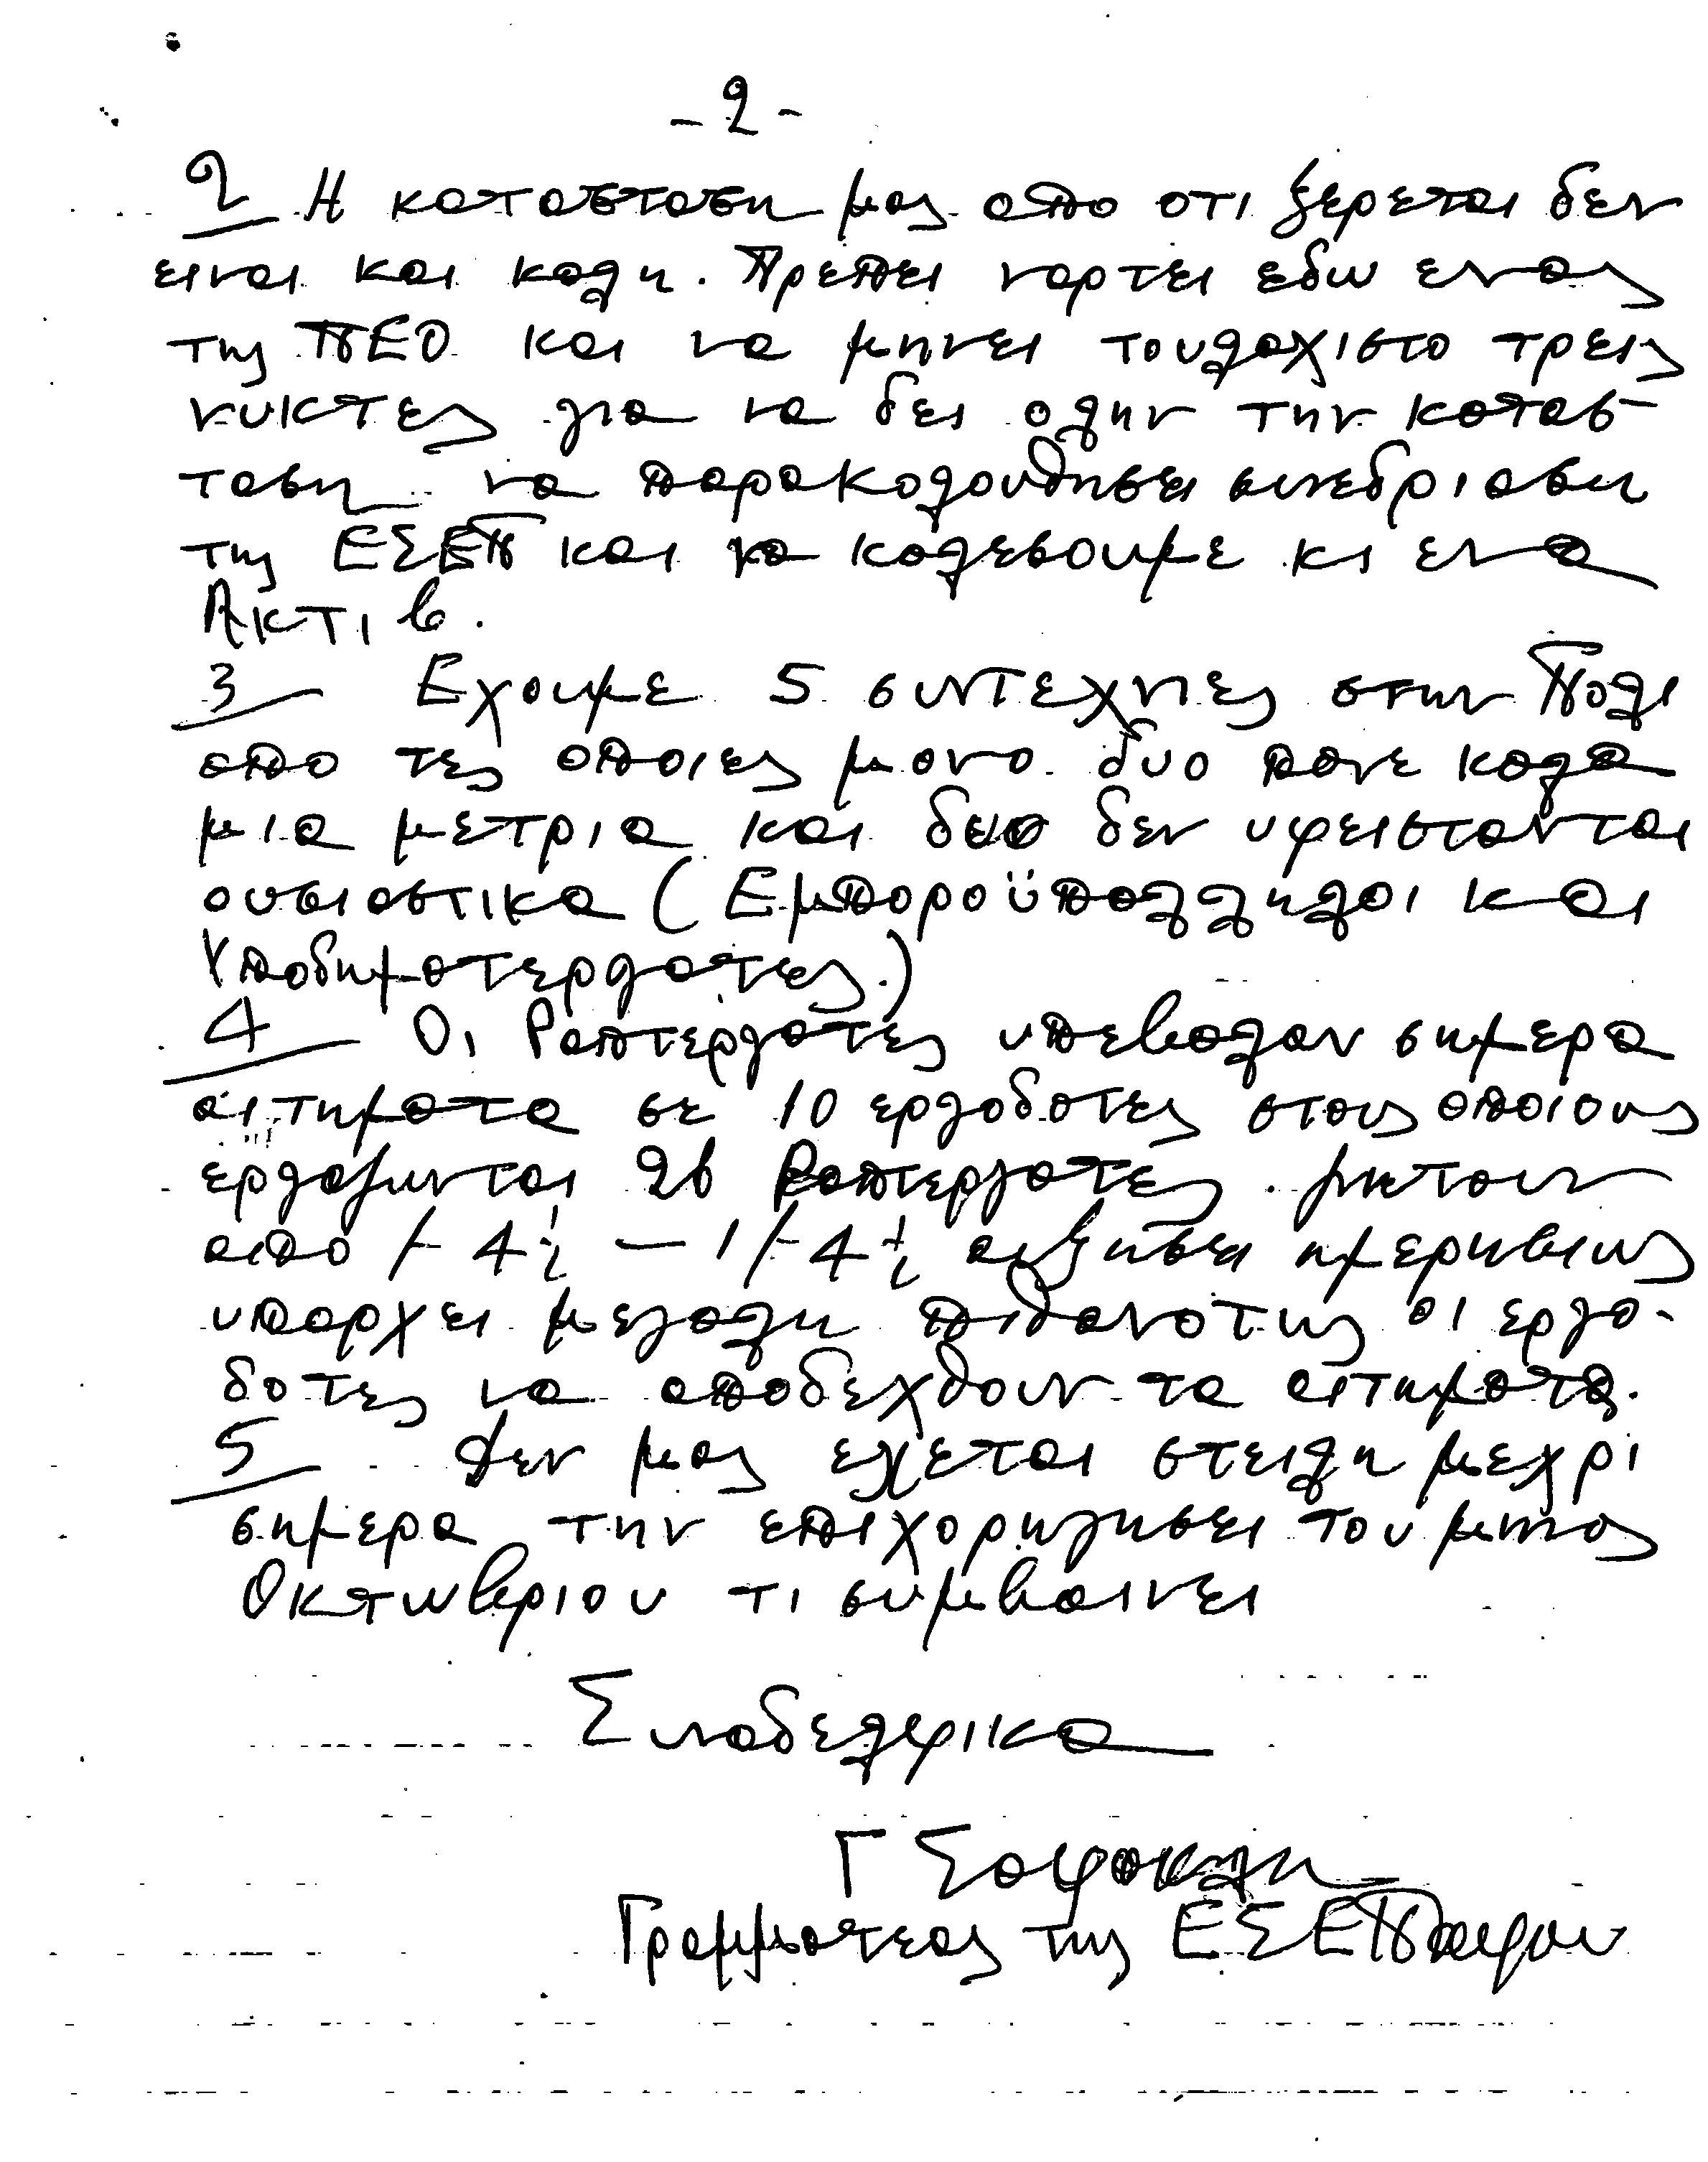 - 2 -
2 Η κατασταση μας απο οτι ξερεται δεν
ειναι και καλη. Πρεπει ναρτει εδω ενας
της ΠΕΟ και να μηνει τουλαχιστο τρεις
νυκτες για να δει ολην την κατασ-
ταση να παρακολουθησει συνεδριαση
της ΕΣΕΠ και να καλεσουμε κι ενα
Ακτιβ.
3 Εχουμε 5 συντεχνιες στην Πολι
απο τες οποιες μονο δυο πανε καλα
μια μετρια και δυο δεν υφειστανται
ουσιαστικα (Εμποροϋπαλληλοι και
Υποδηματεργατες.)
4 Οι Ραπτεργατες υπεβαλαν σημερα
αιτηματα σε 10 εργοδοτες στους οποιους
εργαζωνται 26 Ραπτεργατες. ζητουν
απο /- 4½ — 1/- 4½ αυξησει ημερησιως
υπαρχει μεγαλη πιθανοτης οι εργο-
δοτες να αποδεχθουν τα αιτηματα.
5 Δεν μας εχεται στειλη μεχρι
σημερα την επιχορηγησει του μηνος
Οκτωβριου τι συμβαινει
Συναδελφικα
Γ Σοφοκλη
Γραμματεας της ΕΣΕΠαφου